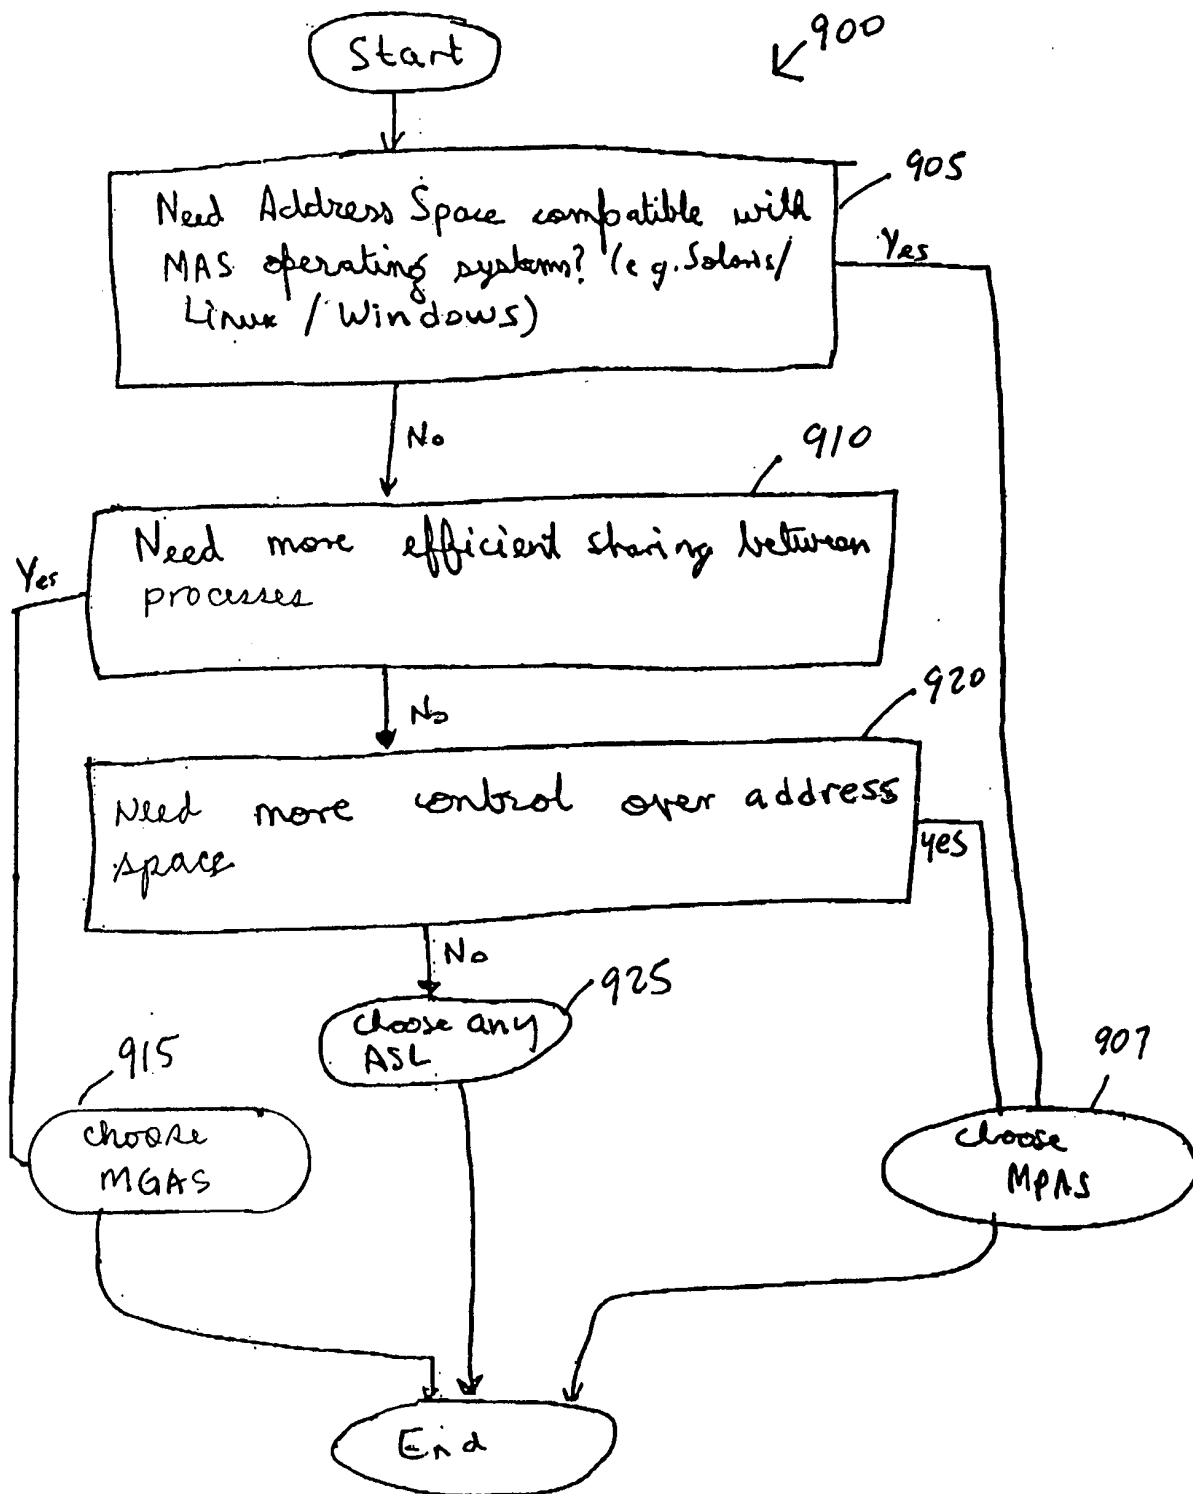 Start
900
905
Need Address Space compatible with
MAS operating systems? (e.g. Solaris/
Linux / Windows)
Yes
No
910
Need more efficient sharing between
processes
Yes
No
920
Need more control over address
space
yes
No
925
choose any
ASL
915
choose
MGAS
907
choose
MPAS
End